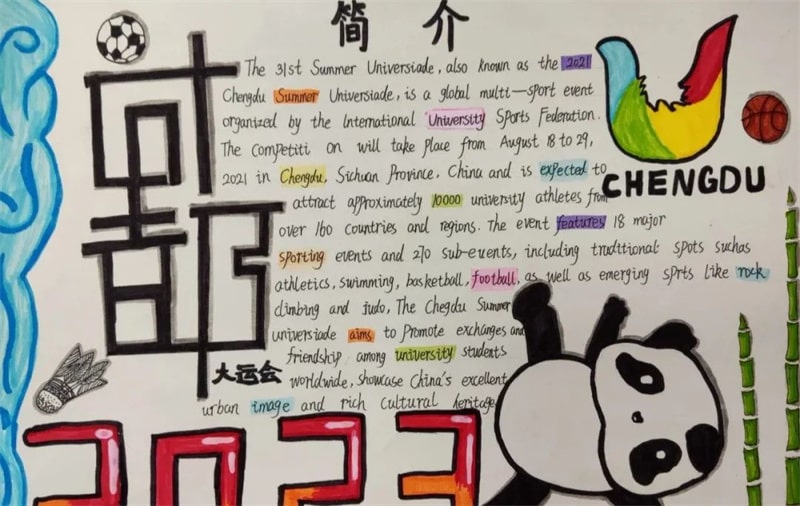 简介
The 31st Summer Universiade, also known as the 2021
Chengdu Summer Universiade, is a global multi-sport event
organized by the International University Sports Federation.
The Competiti on will take place from August 18 to 29,
2021 in Chengdu, Sichuan Province, China and is expected to
attract approximately 10000 university athletes from
over 160 countries and regions. The event features 18 major
sporting events and 270 sub-events, including tradttional spots suchas
athletics, swimming, basketball, football, as well as emerging sprts like rock
climbing and judo, The Chegdu Summer
universiade aims to promote exchanges and
friendship among university students
worldwide, showcase China's excellent
urban image and rich cultural heritage
CHENGDU
成都
大运会
2023